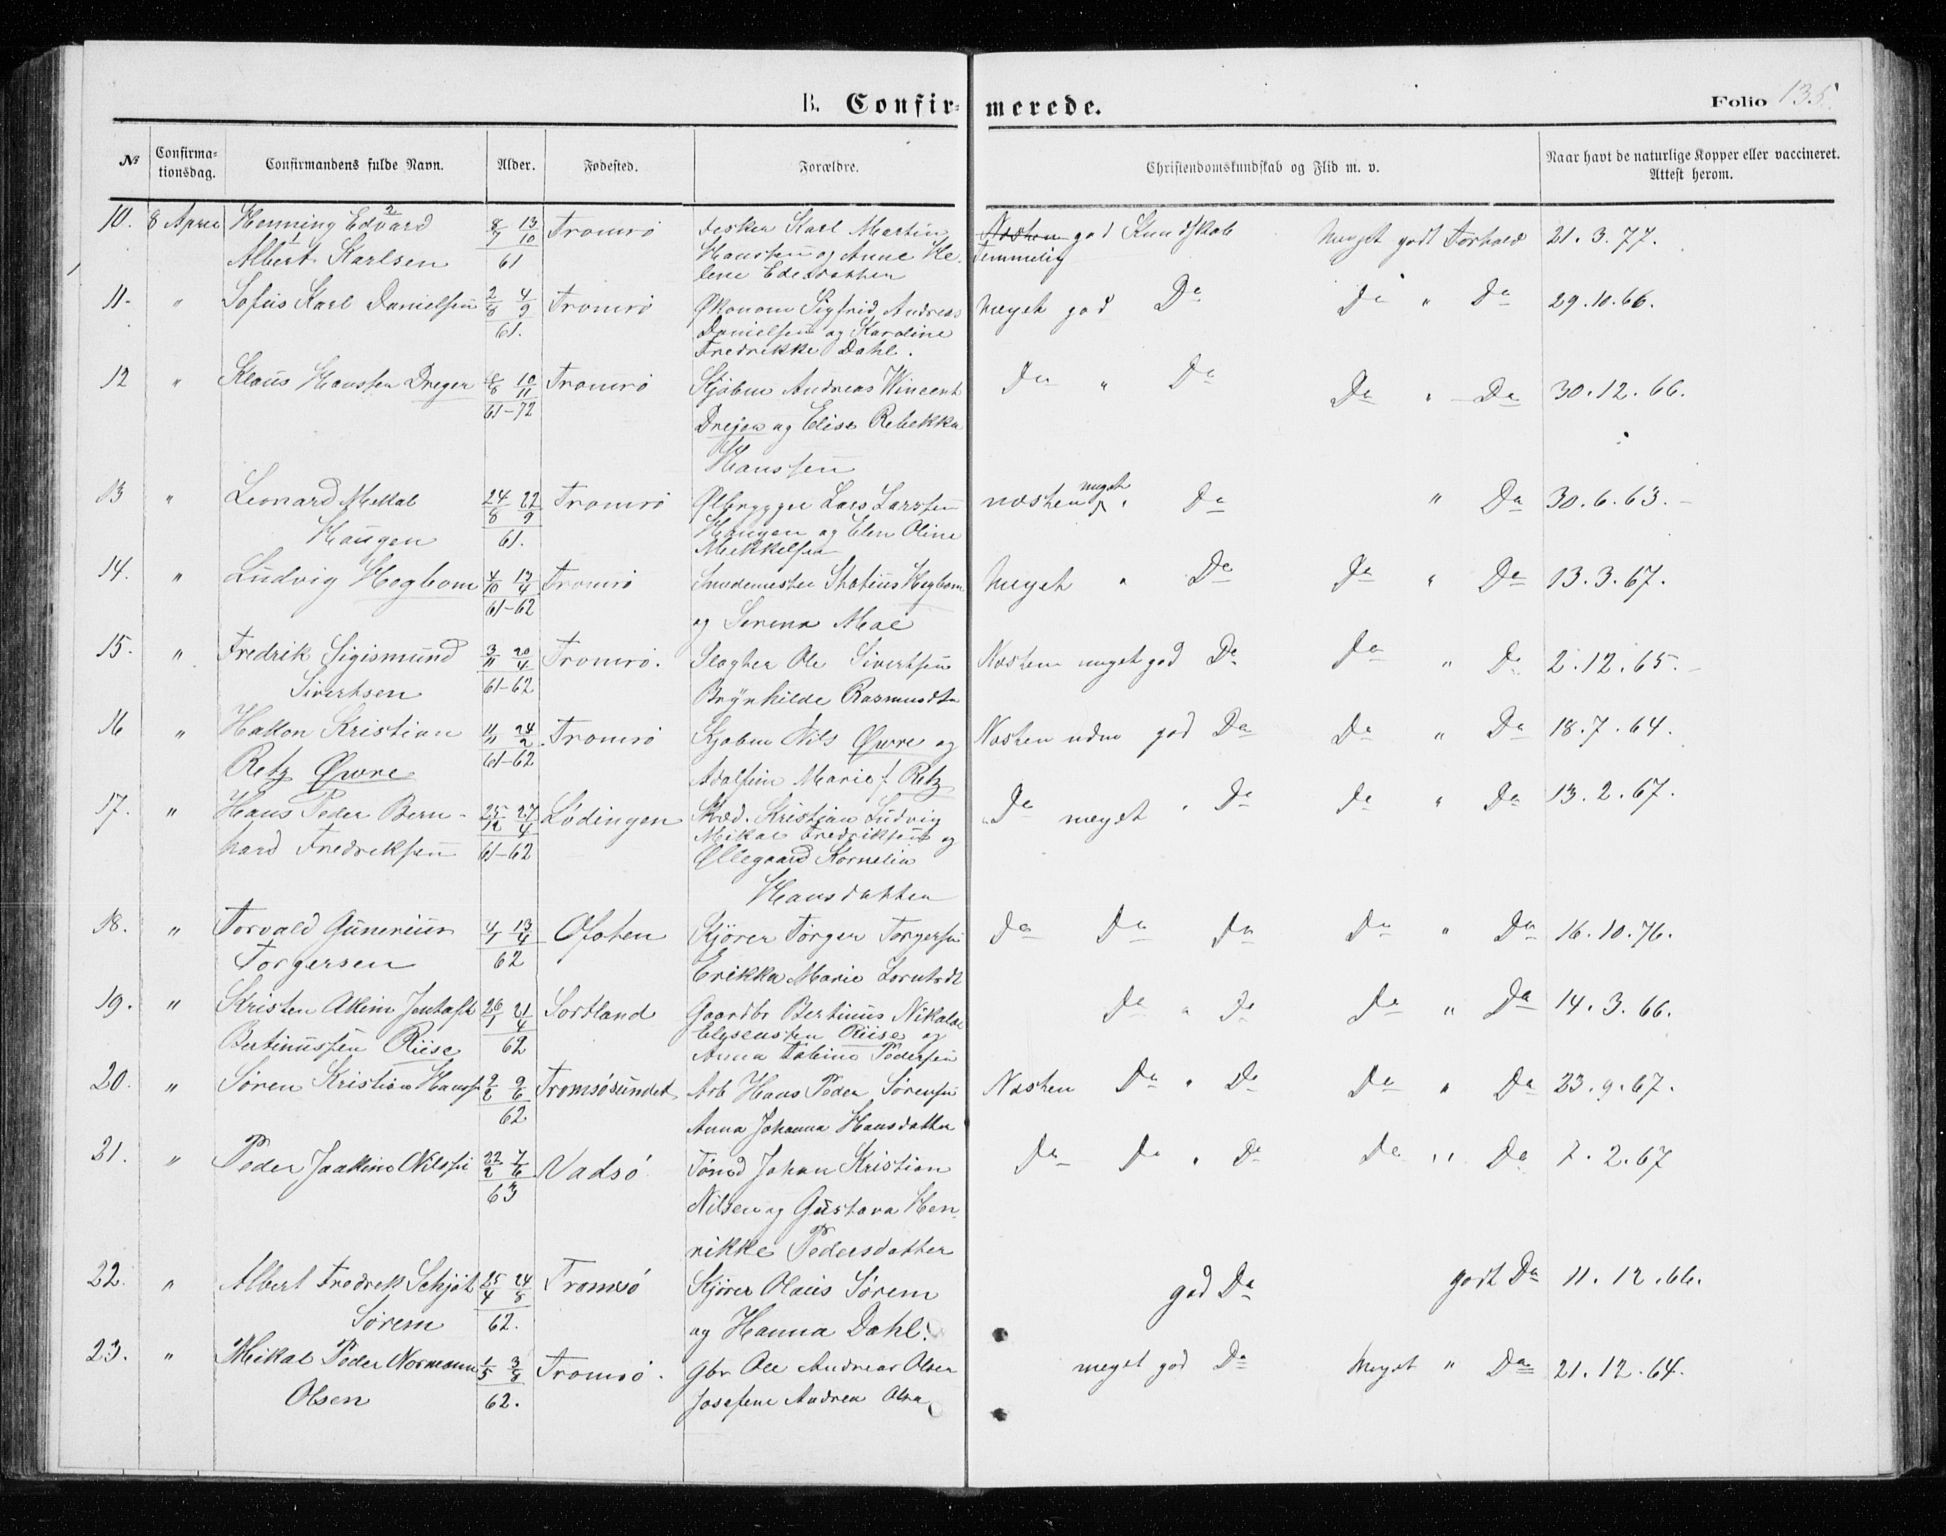 B. Confir- merede. Folio 135.
№ Confirmationsdag. Confirmandens fulde Navn. Alder. Fødested. Forældre. Christendomskundskab og Flid m. v. Naar havt de naturlige Kopper eller vaccineret. Attest herom.
10. 8 April Henning Edvard 8/7 13/10 Tromsø Karl Martin Næsten god Kundskab Meget godt Forhold 21.3.77.
Albert Karlsen 61 Hanssen og Anne He- Temmelig
lene Edisdatter
11. " Sofus Karl Danielsen 2/8 4/9 Tromsø Økonom Sigfrid Andreas Meget god Do Do " Do 29.10.66.
61. Danielsen og Karoline
Fredrikke Dahl.
12 " Klaus Hanssen Dreyer 10/11 Tromsø Kjøbm Andreas Wincent Do " Do Do " Do 30.12.66.
61-72 Dreyer og Elise Rebekka
Hanssen
13 " Leonard Mekal 24/8 22/9 Tromsø Ølbrygger Lars Larssen Næsten meget " Do " Do 30.6.63.
Haugen 61. Haugen og Elen Oline
Mekkelsen
14. " Ludvig Hogbom 4/10 13/4 Tromsø Smedemester Statius Hegbom Meget " Do Do " Do 13.3.67.
61-62 og Serena Moe
15. " Fredrik Sigismund 3/11 20/4 Tromsø. Slagter Ole Sivertsen Næsten meget god Do Do " Do 2.12.65.
Sivertsen 61-62 Brynhilde Rasmusdtr
16 " Hakon Kristian 11/11 24/2 Tromsø Kjøbm Nils Øwre og Næsten udm god Do Do " Do 18.7.64.
Retz Øwre 61-62 Adolfine Marie f. Retz
17. " Hans Peder Bern- 25/12 27/4 Lødingen Skæd. Kristian Ludvig Do meget " Do Do " Do 13.2.67.
hard Fredriksen 61-62 Mikal Fredriksen og
Øllegaard Kornelia
Hansdatter
18. " Torvald Gunerius 4/1 13/4 Ofoten Kjører Torger Torgersen Do Do Do Do " Do 16.10.76.
Torgersen 62 Erikka Marie
19. " Kristen Jentoft 26/1 21/4 Sortland Gaardbr Bertinus Nikolai Do " Do Do " Do 14.3.66.
Bertinussen Riise 62 Elysensten Riise og
Anna Tobine Pedersen
20. " Søren Kristian Hanss 2/2 9/6 Tromsøsundet Arb Hans Peder Sørensen Næsten Do " Do Do " Do 23.9.67.
62 Anna Johanna Hansdatter
21. " Peder Joakim Nilssen 22/2 7/6 Vadsø Tømd Johan Kristian Do Do " Do Do " Do 7.2.67
63 Nilsen og Gustava Hen-
rikke Pedersdatter
22. " Albert Fredrik Schjøt 25/4 24/8 Tromsø Kjører Olaus Sørem god Do godt Do 11.12.66.
Sørem 62. og Hanna Dahl.
23. " Mikal Peder Normann 1/5 3/8 Tromsø. Gbr Ole Andreas Olsen meget god Do Meget " Do 21.12.64.
Olsen 62. Josefine Andrea Olsen